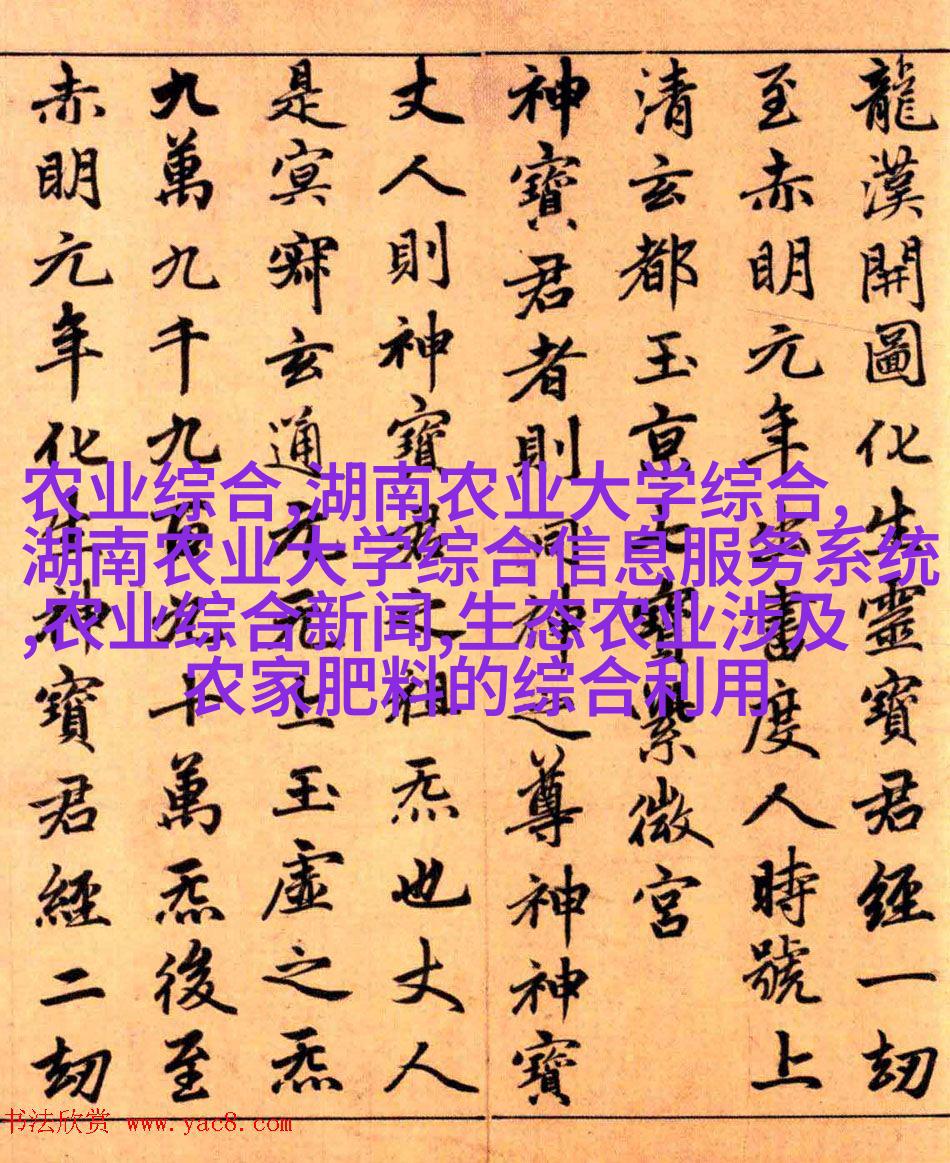 龍漢開圖化生靈寶君經一劫
至赤明元年出書度人時號上
清玄都玉京七寶紫微宮
神寶君者則洞神之尊神神寶
丈人則神寶君之祖炁也丈人
是冥寂玄通元无上玉虛之炁
九萬九千九百九十萬炁後至
赤明元年化生神寶君經二劫
农业综合,湖南农业大学综合,
湖南农业大学综合信息服务系统
,农业综合新闻,生态农业涉及
农家肥料的综合利用
书法欣赏 www.yac8.com